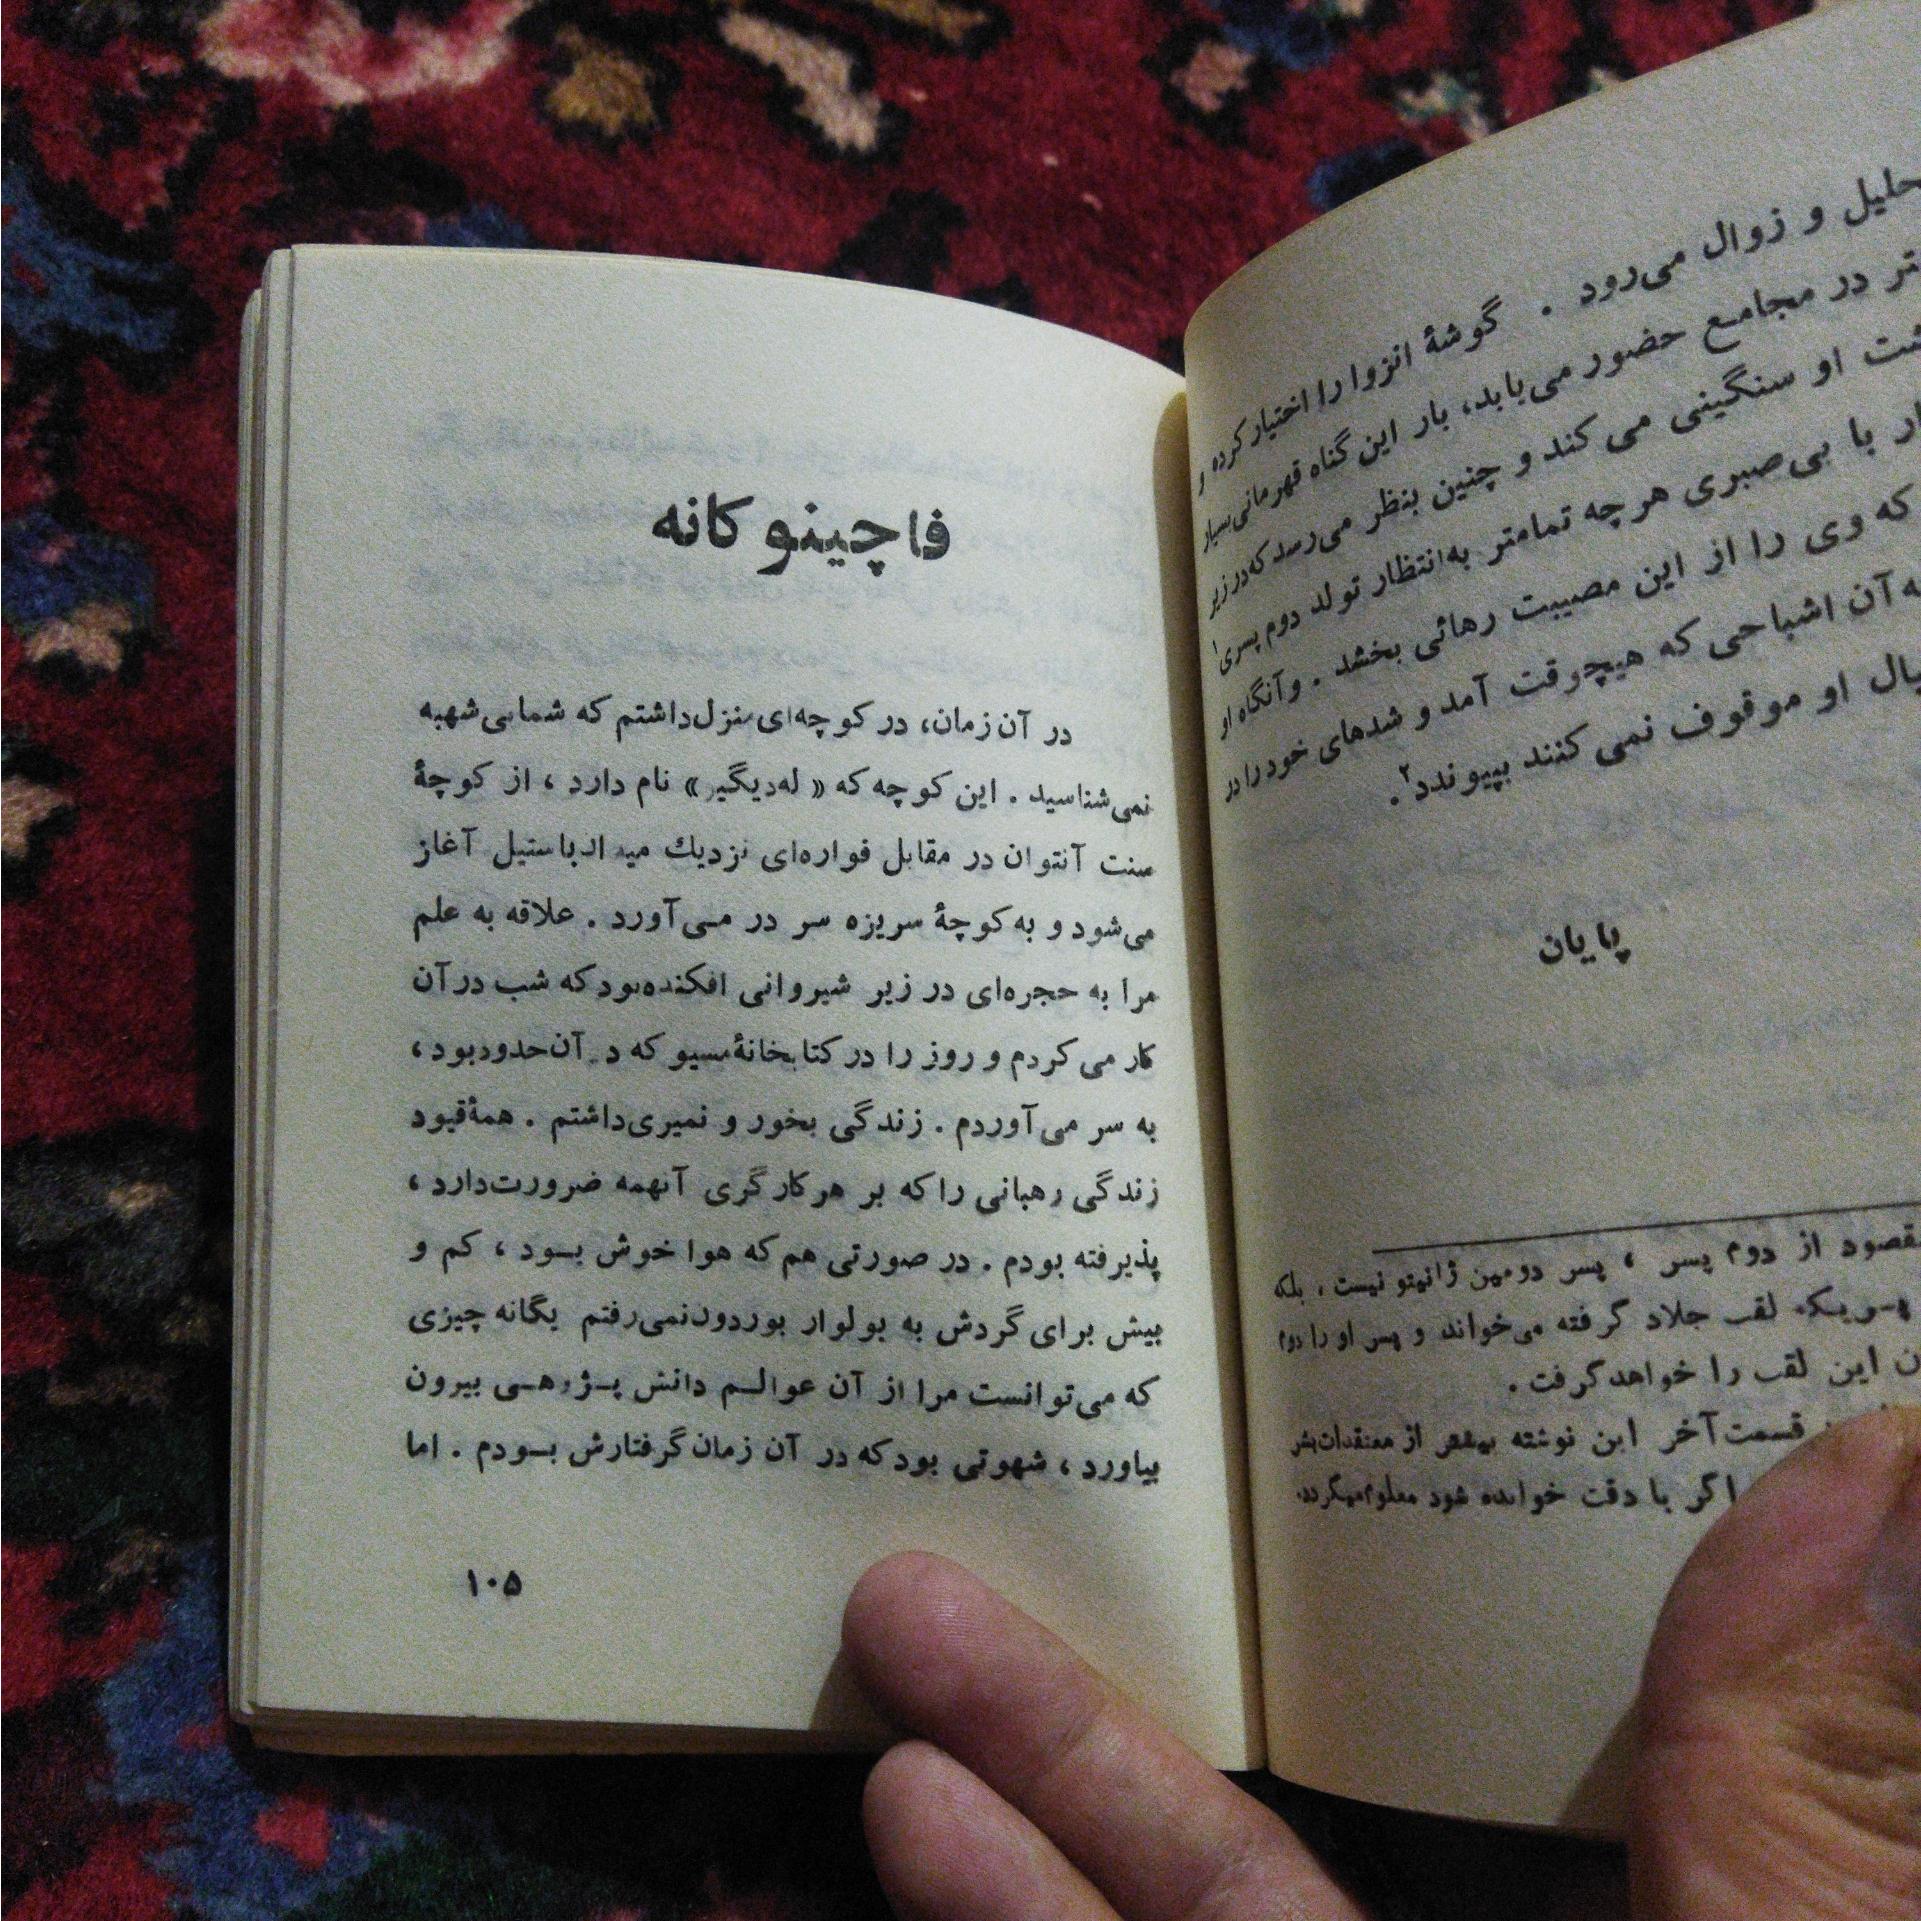 حلیل و زوال می‌رود . گوشهٔ انزوا را اختیار کرده و
تر در مجامع حضور می‌یابد، بار این گناه قهرمانی بسیار
او سنگینی می کند و چنین بنظر می‌رسد که در زیر
با بی‌صبری هر چه تمامتر به‌انتظار تولد دوم پسری۱
که وی را از این مصیبت رهائی بخشد . وآنگاه او
آن اشباحی که هیچوقت آمد و شدهای خود را در
او موقوف نمی کنند بپیوندد۲.
پایان
مقصود از دوم پسر ، پسر دومین ژانیتو نیست ، بلکه
لقب جلاد گرفته می‌خواند و پسر او را دوم
این لقب را خواهد گرفت .
قسمت آخر این نوشته بیشتر از معتقدات
اگر با دقت خوانده شود معلوم میگردد.
فاچینو کانه
در آن زمان، در کوچه‌ای منزل داشتم که شمامی‌شهبه
نمی‌شناسید . این کوچه که « له‌دیگیر» نام دارد ، از کوچهٔ
سنت آنتوان در مقابل فواره‌ای نزدیك میدان باستیل آغاز
می‌شود و به کوچهٔ سریزه سر در مـی‌آورد . علاقه به علم
مرا به حجره‌ای در زیر شیروانی افکنده بود که شب در آن
کار می کردم و روز را در کتابخانهٔ مسیو که در آن حدود بود ،
به سر می‌آوردم . زندگی بخور و نمیری داشتم . همهٔ قیود
زندگی رهبانی را که بر هر کارگری آنهمه ضرورت دارد ،
پذیرفته بودم . در صورتی هم که هوا خوش بـود ، کم و
بیش برای گردش به بولوار بوردون نمی‌رفتم یگانه چیزی
که می‌توانست مرا از آن عوالـم دانش پـژوهـی بیرون
بیاورد ، شهوتی بود که در آن زمان گرفتارش بـودم . اما
۱۰۵